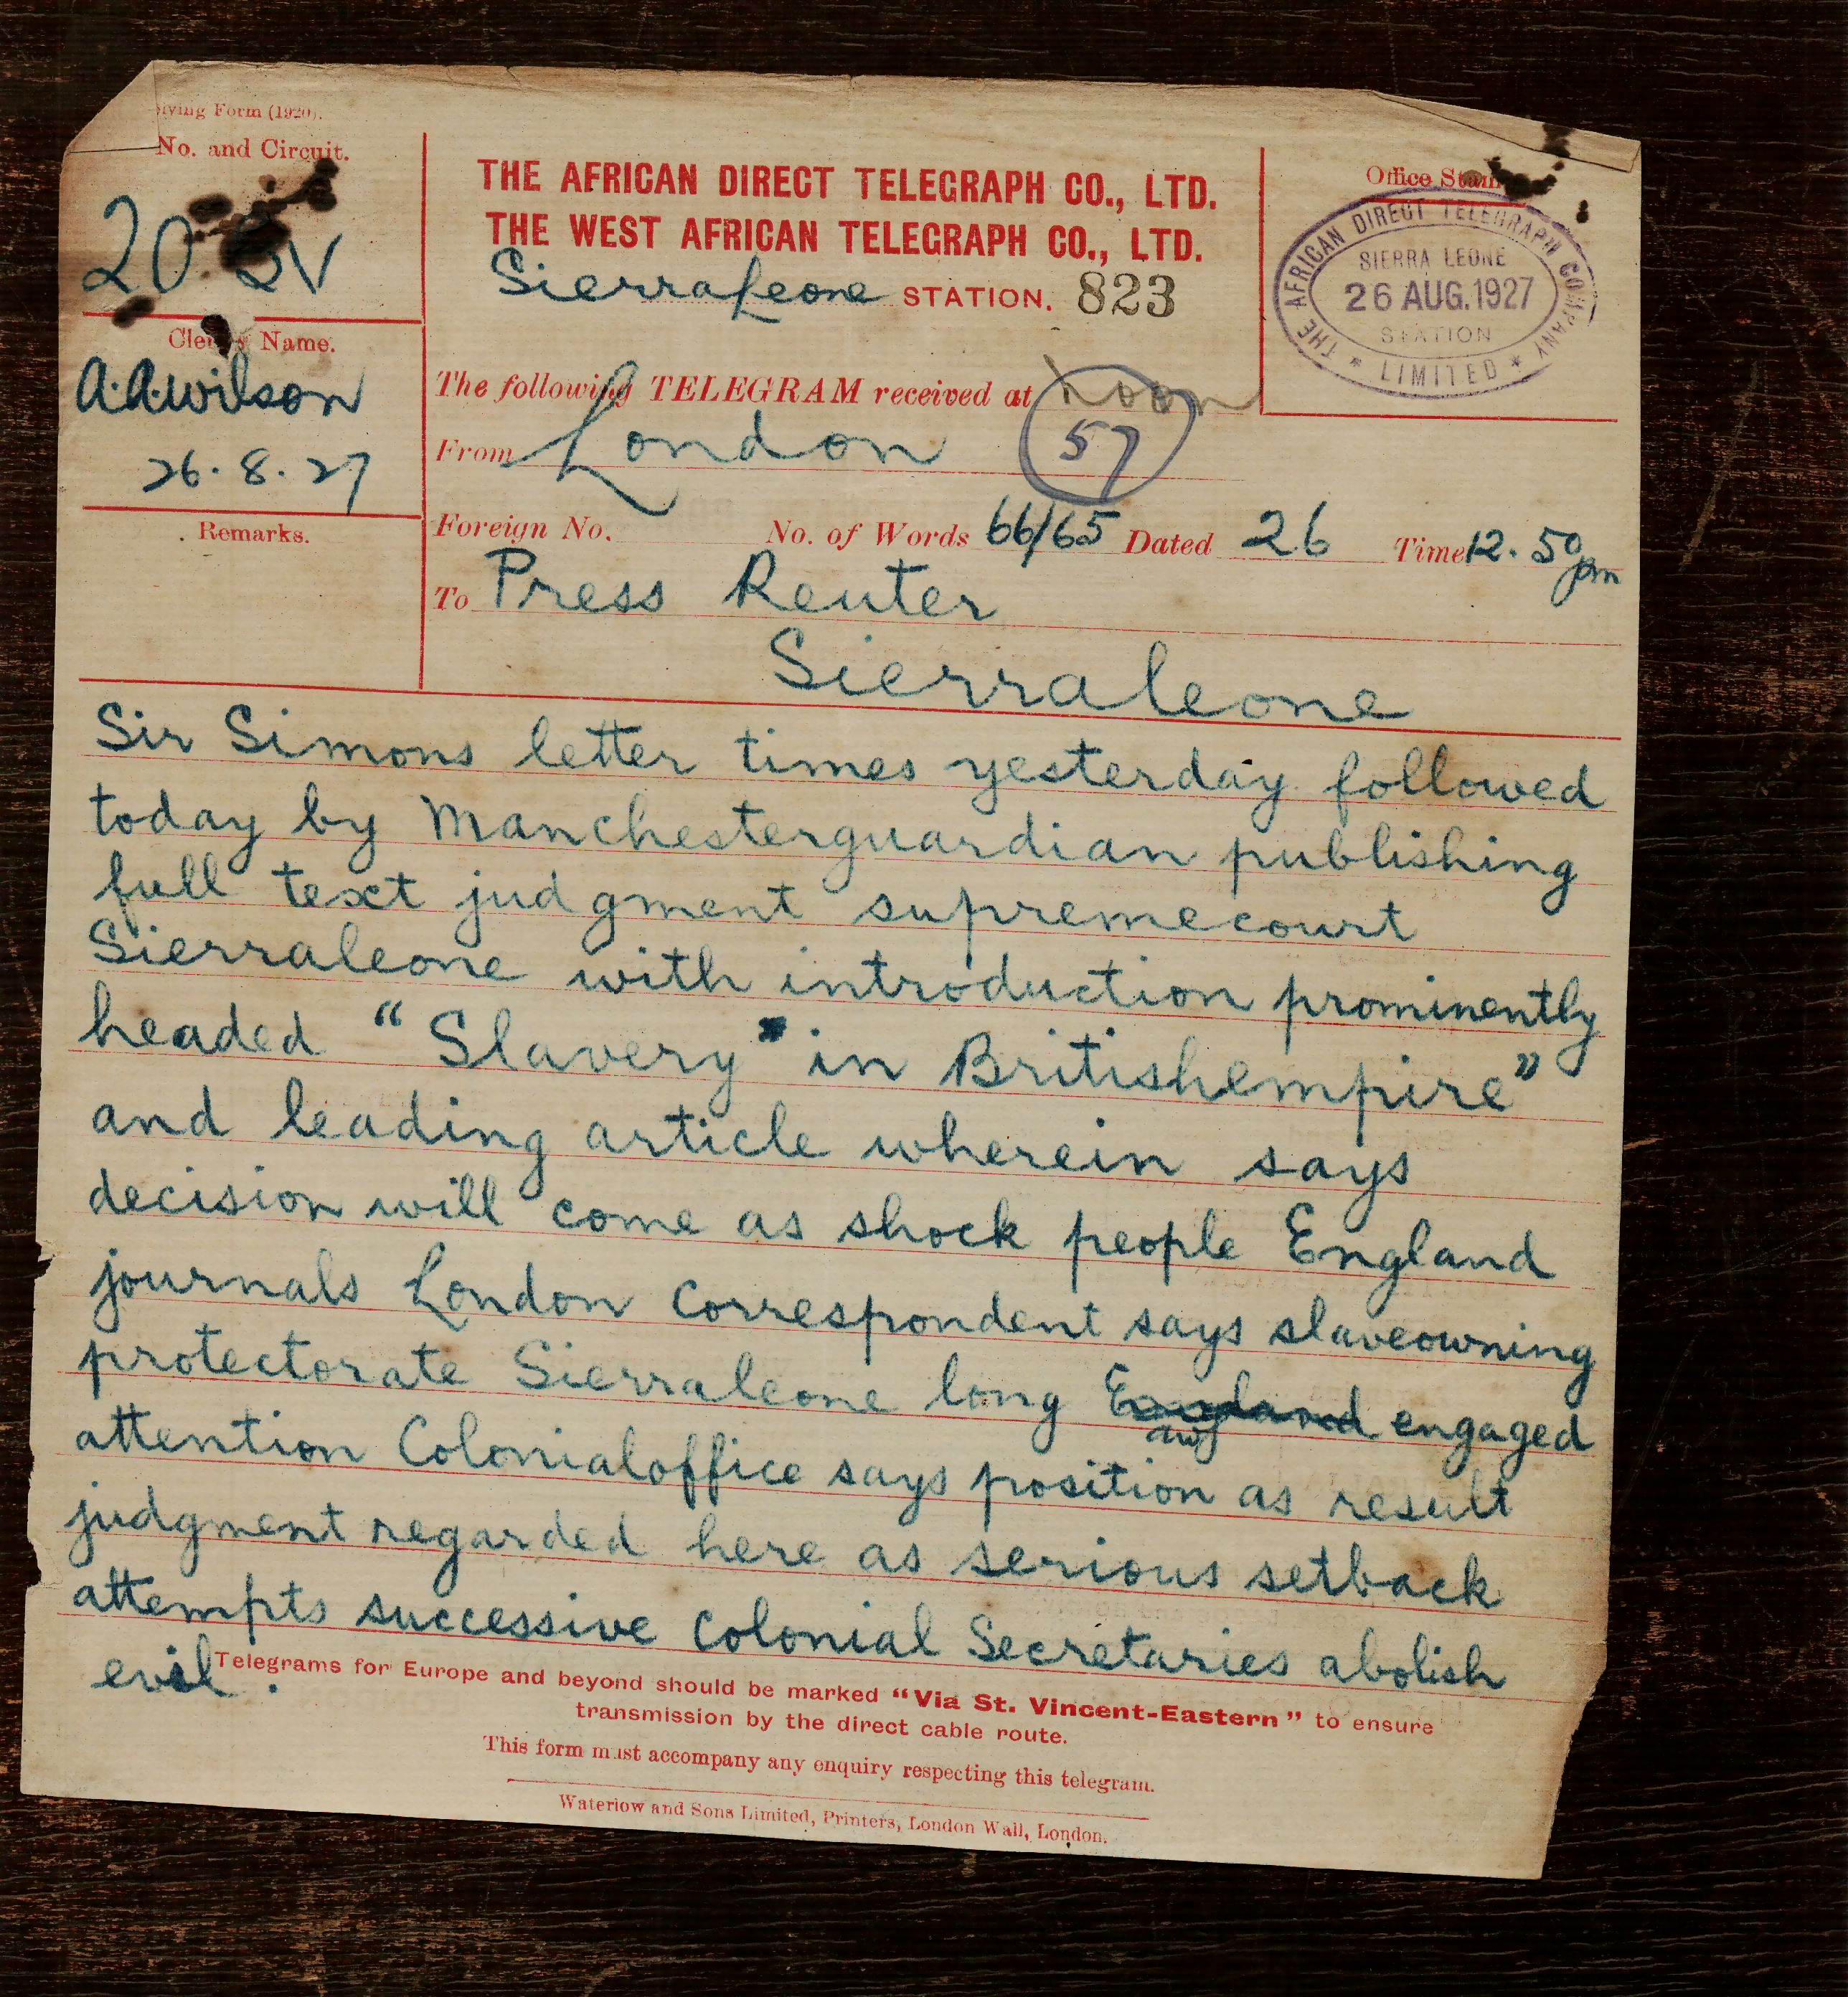 iving Form (1920).
No. and Circuit.
20 SV
Clerk's Name.
A.A.Wilson
26.8.27
Remarks.
THE AFRICAN DIRECT TELEGRAPH CO., LTD.
THE WEST AFRICAN TELEGRAPH CO., LTD.
SierraLeone STATION. 823
Office Stam
THE AFRICAN DIRECT TELEGRAPH COMPANY
SIERRA LEONE
26 AUG. 1927
STATION
* LIMITED *
The following TELEGRAM received at noon
From London 57
Foreign No. No. of Words 66/65 Dated 26 Time 12.50 pm
To Press Reuter
Sierraleone
Sir Simons letter times yesterday followed
today by Manchesterguardian publishing
full text judgment supremecourt
Sierraleone with introduction prominently
headed "Slavery" in Britishempire"
and leading article wherein says
decision will come as shock people England
journals London correspondent says slaveowning
protectorate Sierraleone long England engaged
attention Colonialoffice says position as result
judgment regarded here as serious setback
attempts successive Colonial Secretaries abolish
evil.
Telegrams for Europe and beyond should be marked "Via St. Vincent-Eastern" to ensure
transmission by the direct cable route.
This form must accompany any enquiry respecting this telegram.
Waterlow and Sons Limited, Printers, London Wall, London.